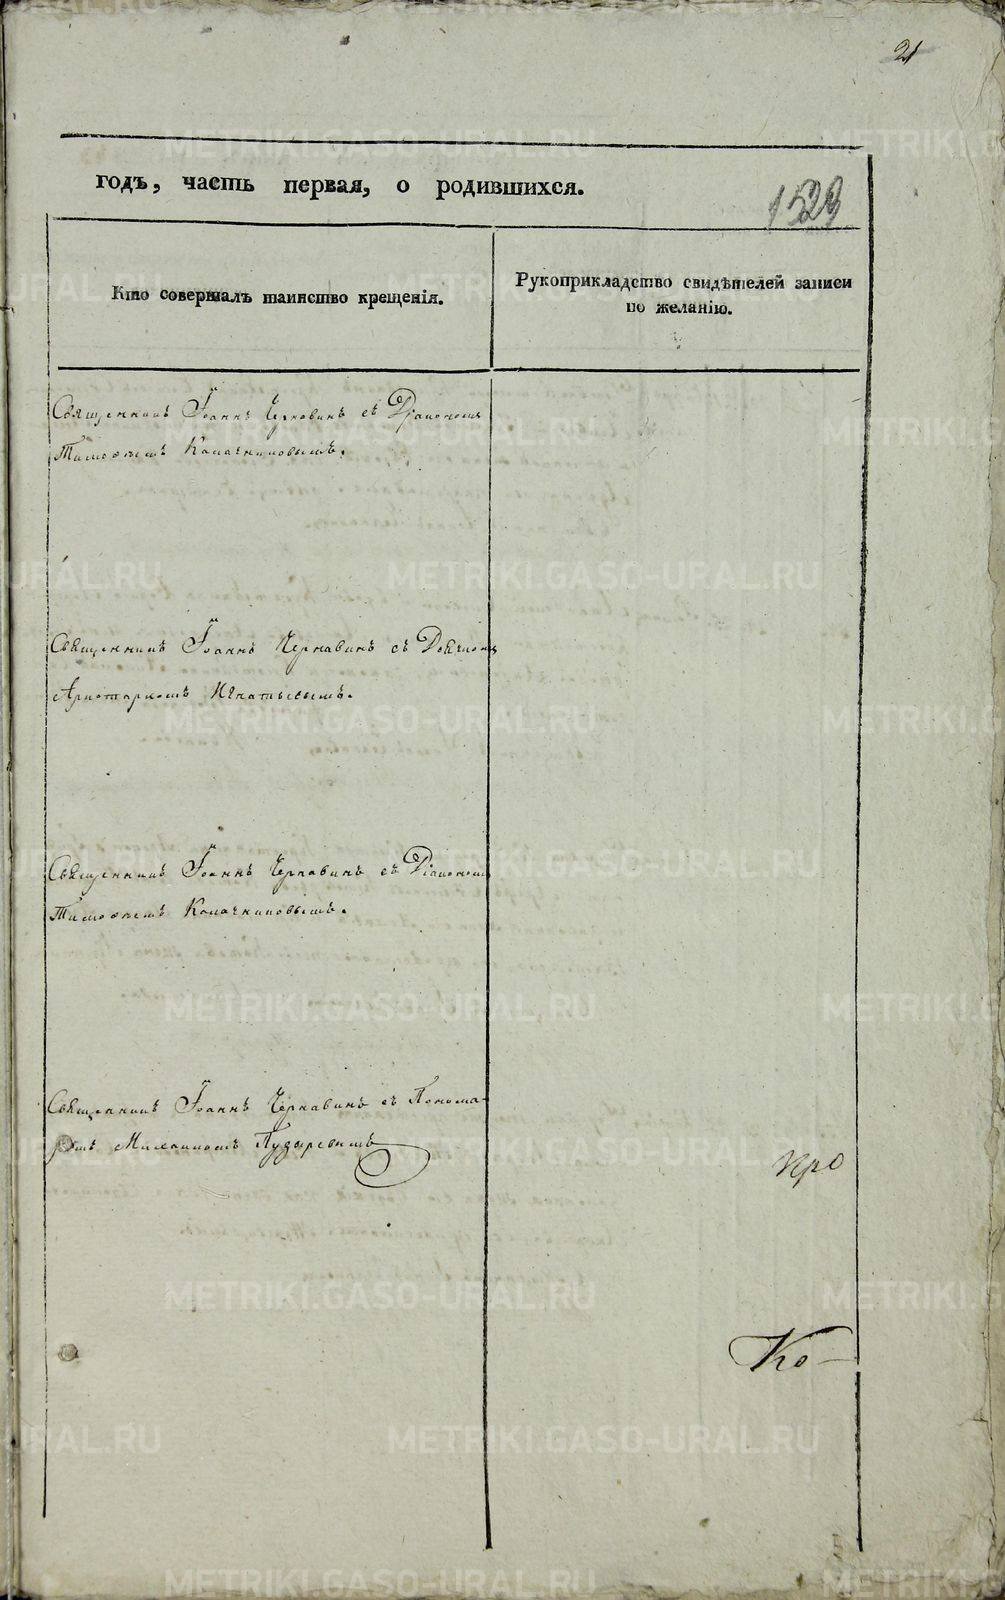 21
годъ, часть первая, о родившихся.
1523
Кто совершалъ таинство крещенія.
Рукоприкладство свидѣтелей записи
по желанію.
Священникъ Іоаннъ Чернавинъ съ Діакономъ
Тимоѳеемъ Калачниковымъ.
Священникъ Іоаннъ Чернавинъ съ Дьячкомъ
Аристархомъ Игнатьевымъ.
Священникъ Іоаннъ Чернавинъ съ Діакономъ
Тимоѳеемъ Калачниковымъ.
Священникъ Іоаннъ Чернавинъ съ Понома-
ремъ Михаиломъ Пудыревымъ
про
Ко-
METRIKI.GASO-URAL.RU